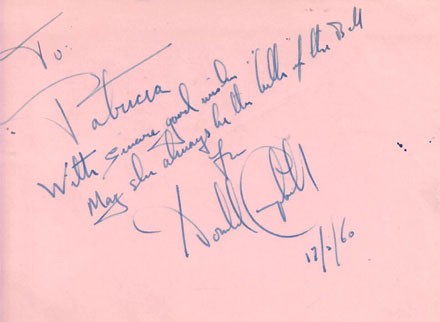 To
Patricia
With sincere good wishes
May she always be the "belle" of the Ball
Donald Campbell
17/2/60